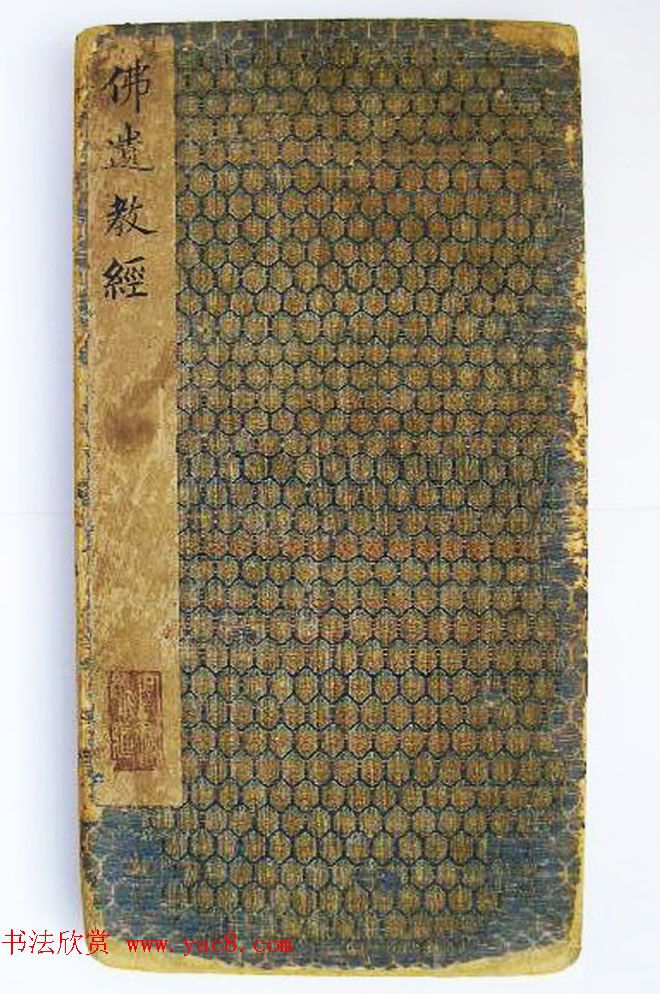 佛遺教經
书法欣赏 www.yac8.com